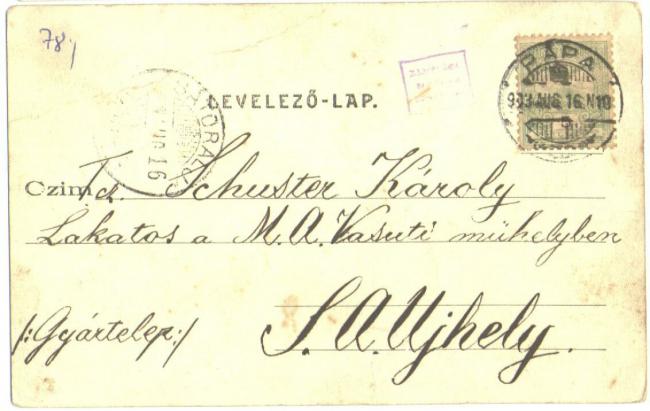 78.
PÁPA
903 AUG. 16. N 10
LEVELEZŐ-LAP.
Czim Tcz. Schuster Károly
Lakatos a M. A. Vasuti mühelyben
S. A. Ujhely.
/: Gyártelep :/